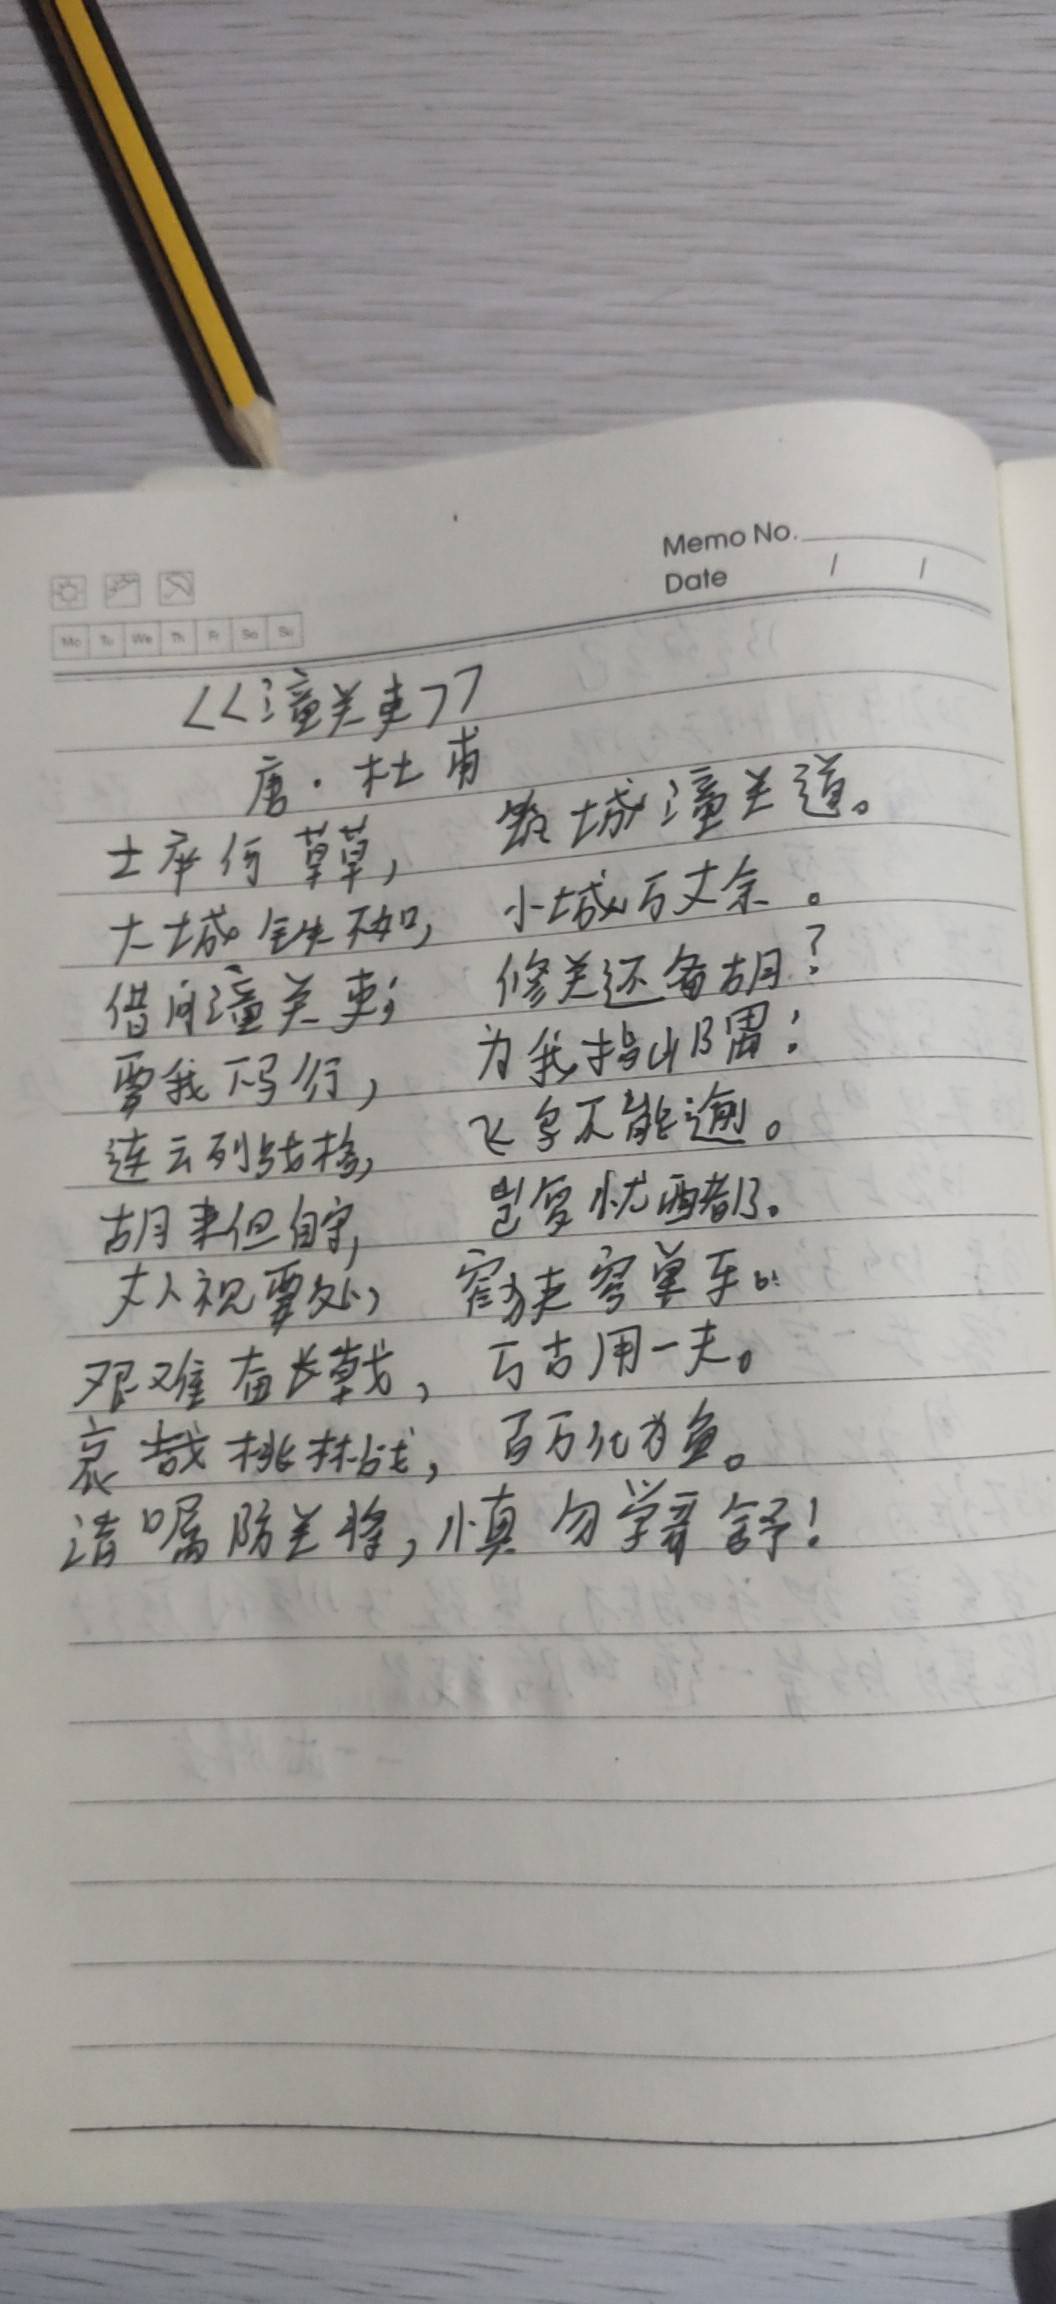 Memo No.
Date / /
Mo Tu We Th Fr Sa Su
<<潼关吏>>
唐·杜甫
士卒何草草， 筑城潼关道。
大城铁不如， 小城万丈余。
借问潼关吏； 修关还备胡？
要我下马行， 为我指山隅：
连云列战格， 飞鸟不能逾。
胡来但自守， 岂复忧西都。
丈人视要处， 窄狭容单车。
艰难奋长戟， 万古用一夫。
哀哉桃林战， 百万化为鱼。
请嘱防关将，慎勿学哥舒！